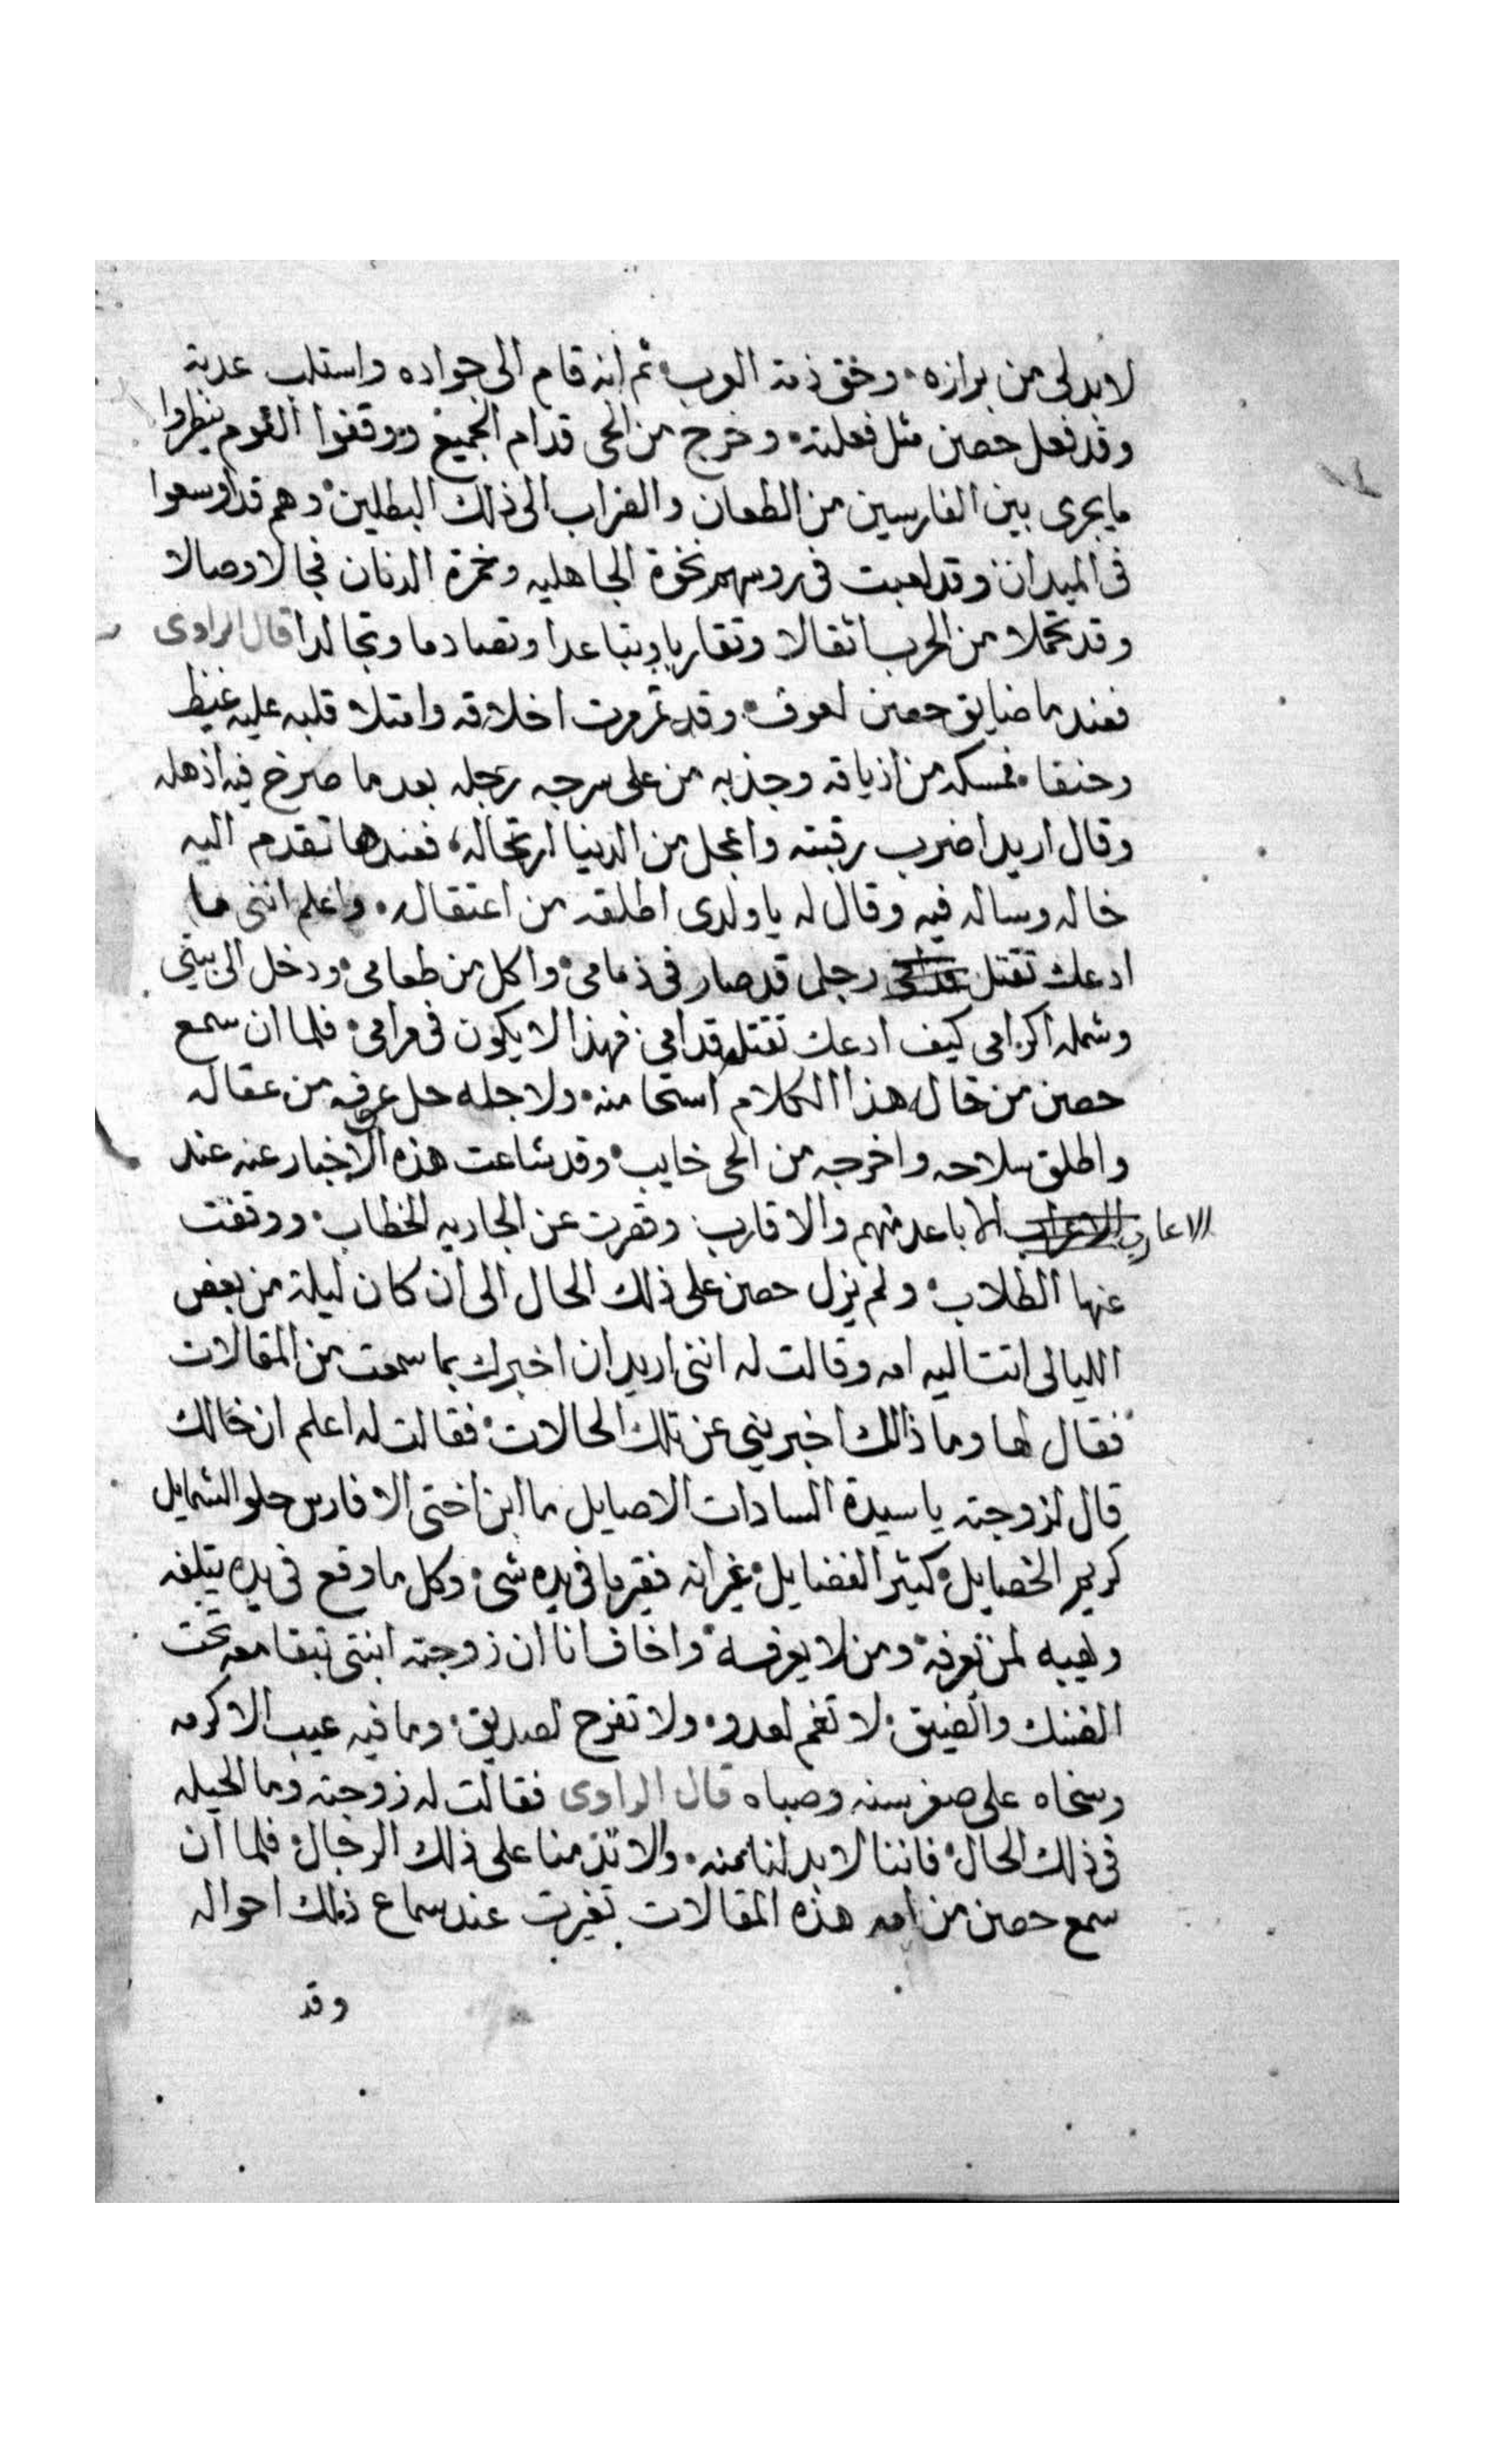 لابد لى من برازه وحق ذمة العرب ثم انه قام الى جواده واستلب عدته
وقد فعل حصن مثل فعلته وخرج من الحى قدام الجميع ووقفوا القوم ينظروا
ما يجرى بين الفارسين من الطعان والضراب الى ذلك البطلين وهم قد اوسعوا
فى الميدان وقد لعبت فى روسهم نخوة الجاهليه وخمرة الدنان فجالا وصالا
وقد تحملا من الحرب اثقالا وتقاربا وتباعدا وتصادما وتجالدا قال الراوى
فعندما ضايق حصن لعوف وقد تمرمرت اخلاقه وامتلا قلبه عليه غيظ
وحنقا فمسكه من ازياقه وجذبه من على سرجه رجله بعد ما صرخ فيه اذهله
وقال اريد اضرب رقبته واعجل من الدنيا ارتحاله فعندها تقدم اليه
خاله وساله فيه وقال له يا ولدى اطلقه من اعتقاله واعلم اننى ما
ادعك تقتل رجلى قد صار فى ذمامى واكل من طعامى ودخل الى بيتى
وشمله اكرامى كيف ادعك تقتله قدامى فهذا لا يكون فى مرامى فلما ان سمع
حصن من خاله هذا الكلام استحا منه ولاجله حل عوف من عقاله
واطلق سلاحه واخرجه من الحى خايب وقد شاعت هذه الاخبار عنه عند
الاعارب الاباعد منهم والاقارب وقصرت عن الجاريه الخطاب ووقفت
عنها الطلاب ولم يزل حصن على ذلك الحال الى ان كان ليلة من بعض
الليالى اتت اليه امه وقالت له اننى اريد ان اخبرك بما سمعت من المقالات
فقال لها وما ذالك اخبرينى عن تلك الحالات فقالت له اعلم ان خالك
قال لزوجته يا سيدة السادات الاصايل ما ابن اختى الا فارس حلو الشمايل
كريم الخصايل كثير الفضايل غير انه فقير ما فى يده شى وكل ما وقع فى يده يتلفه
ولهيبه لمن يعرفه ومن لا يعرفه واخاف انا ان زوجته ابنتى تبقا معه تحت
الضنك والضيق لا تغم لعدو ولا تفرح لصديق وما فيه عيب الا كرمه
وسخاه على صغر سنه وصباه قال الراوى فقالت له زوجته وما الحيله
فى ذلك الحال فاننا لا بد لنا منه والا تذمنا على ذلك الرجال فلما ان
سمع حصن من امه هذه المقالات تغيرت عند سماع ذلك احواله
وقد